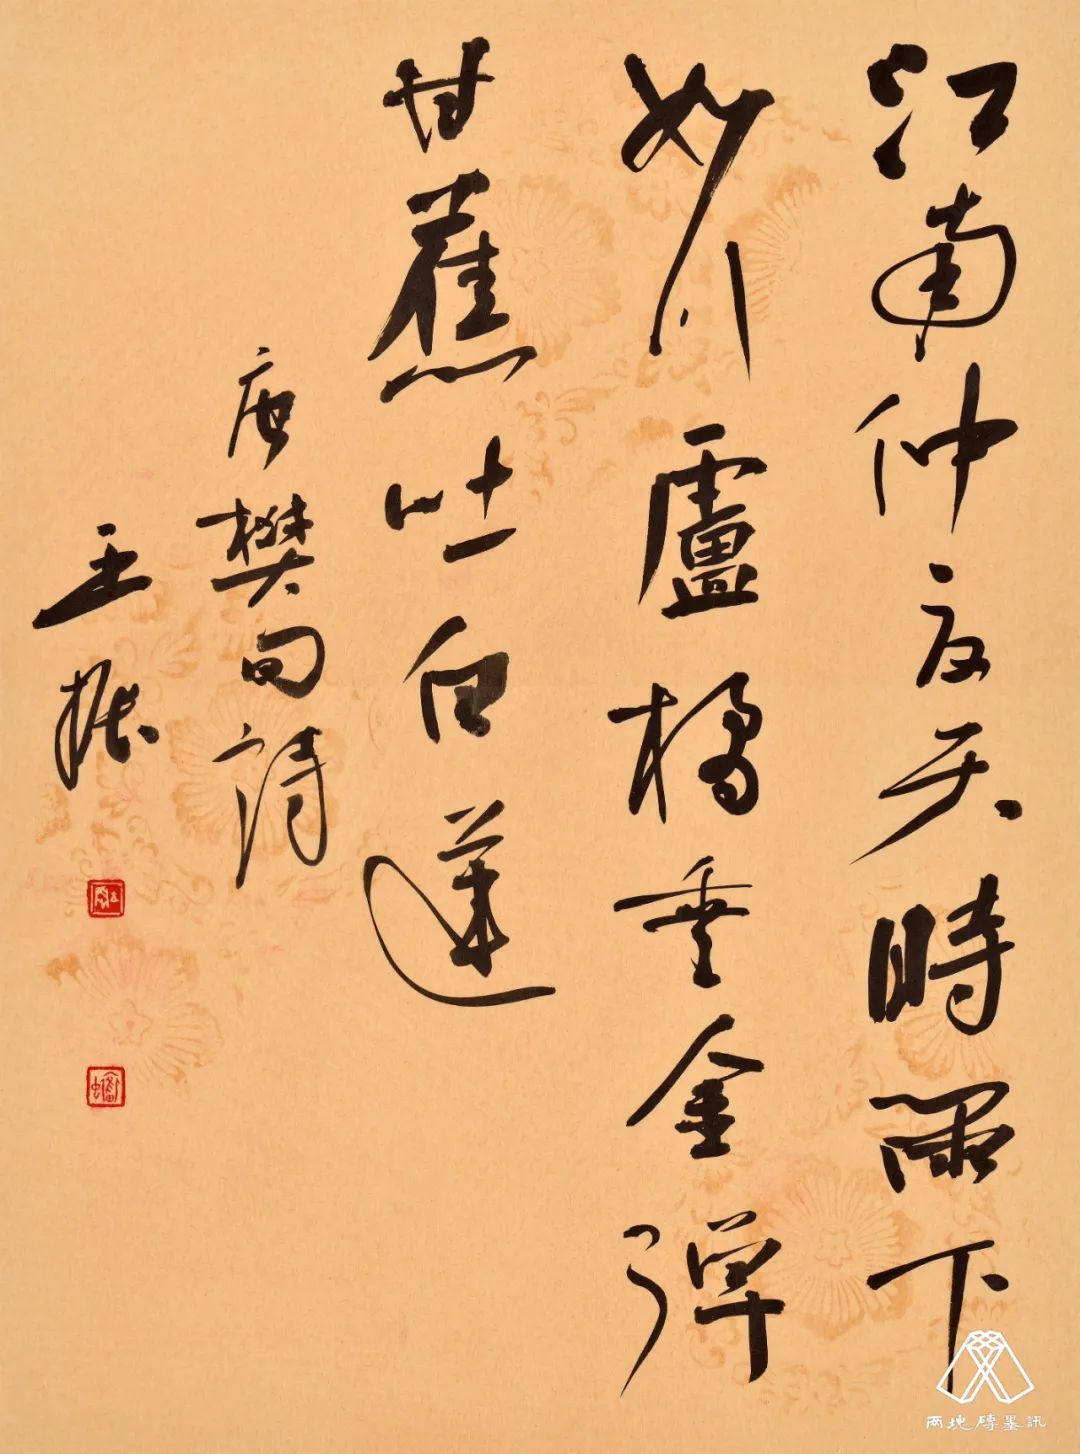 江南仲夏天時雨下
如川盧橘垂金彈
甘蕉吐白蓮
唐樊珣詩
王振
兩地磚墨訊